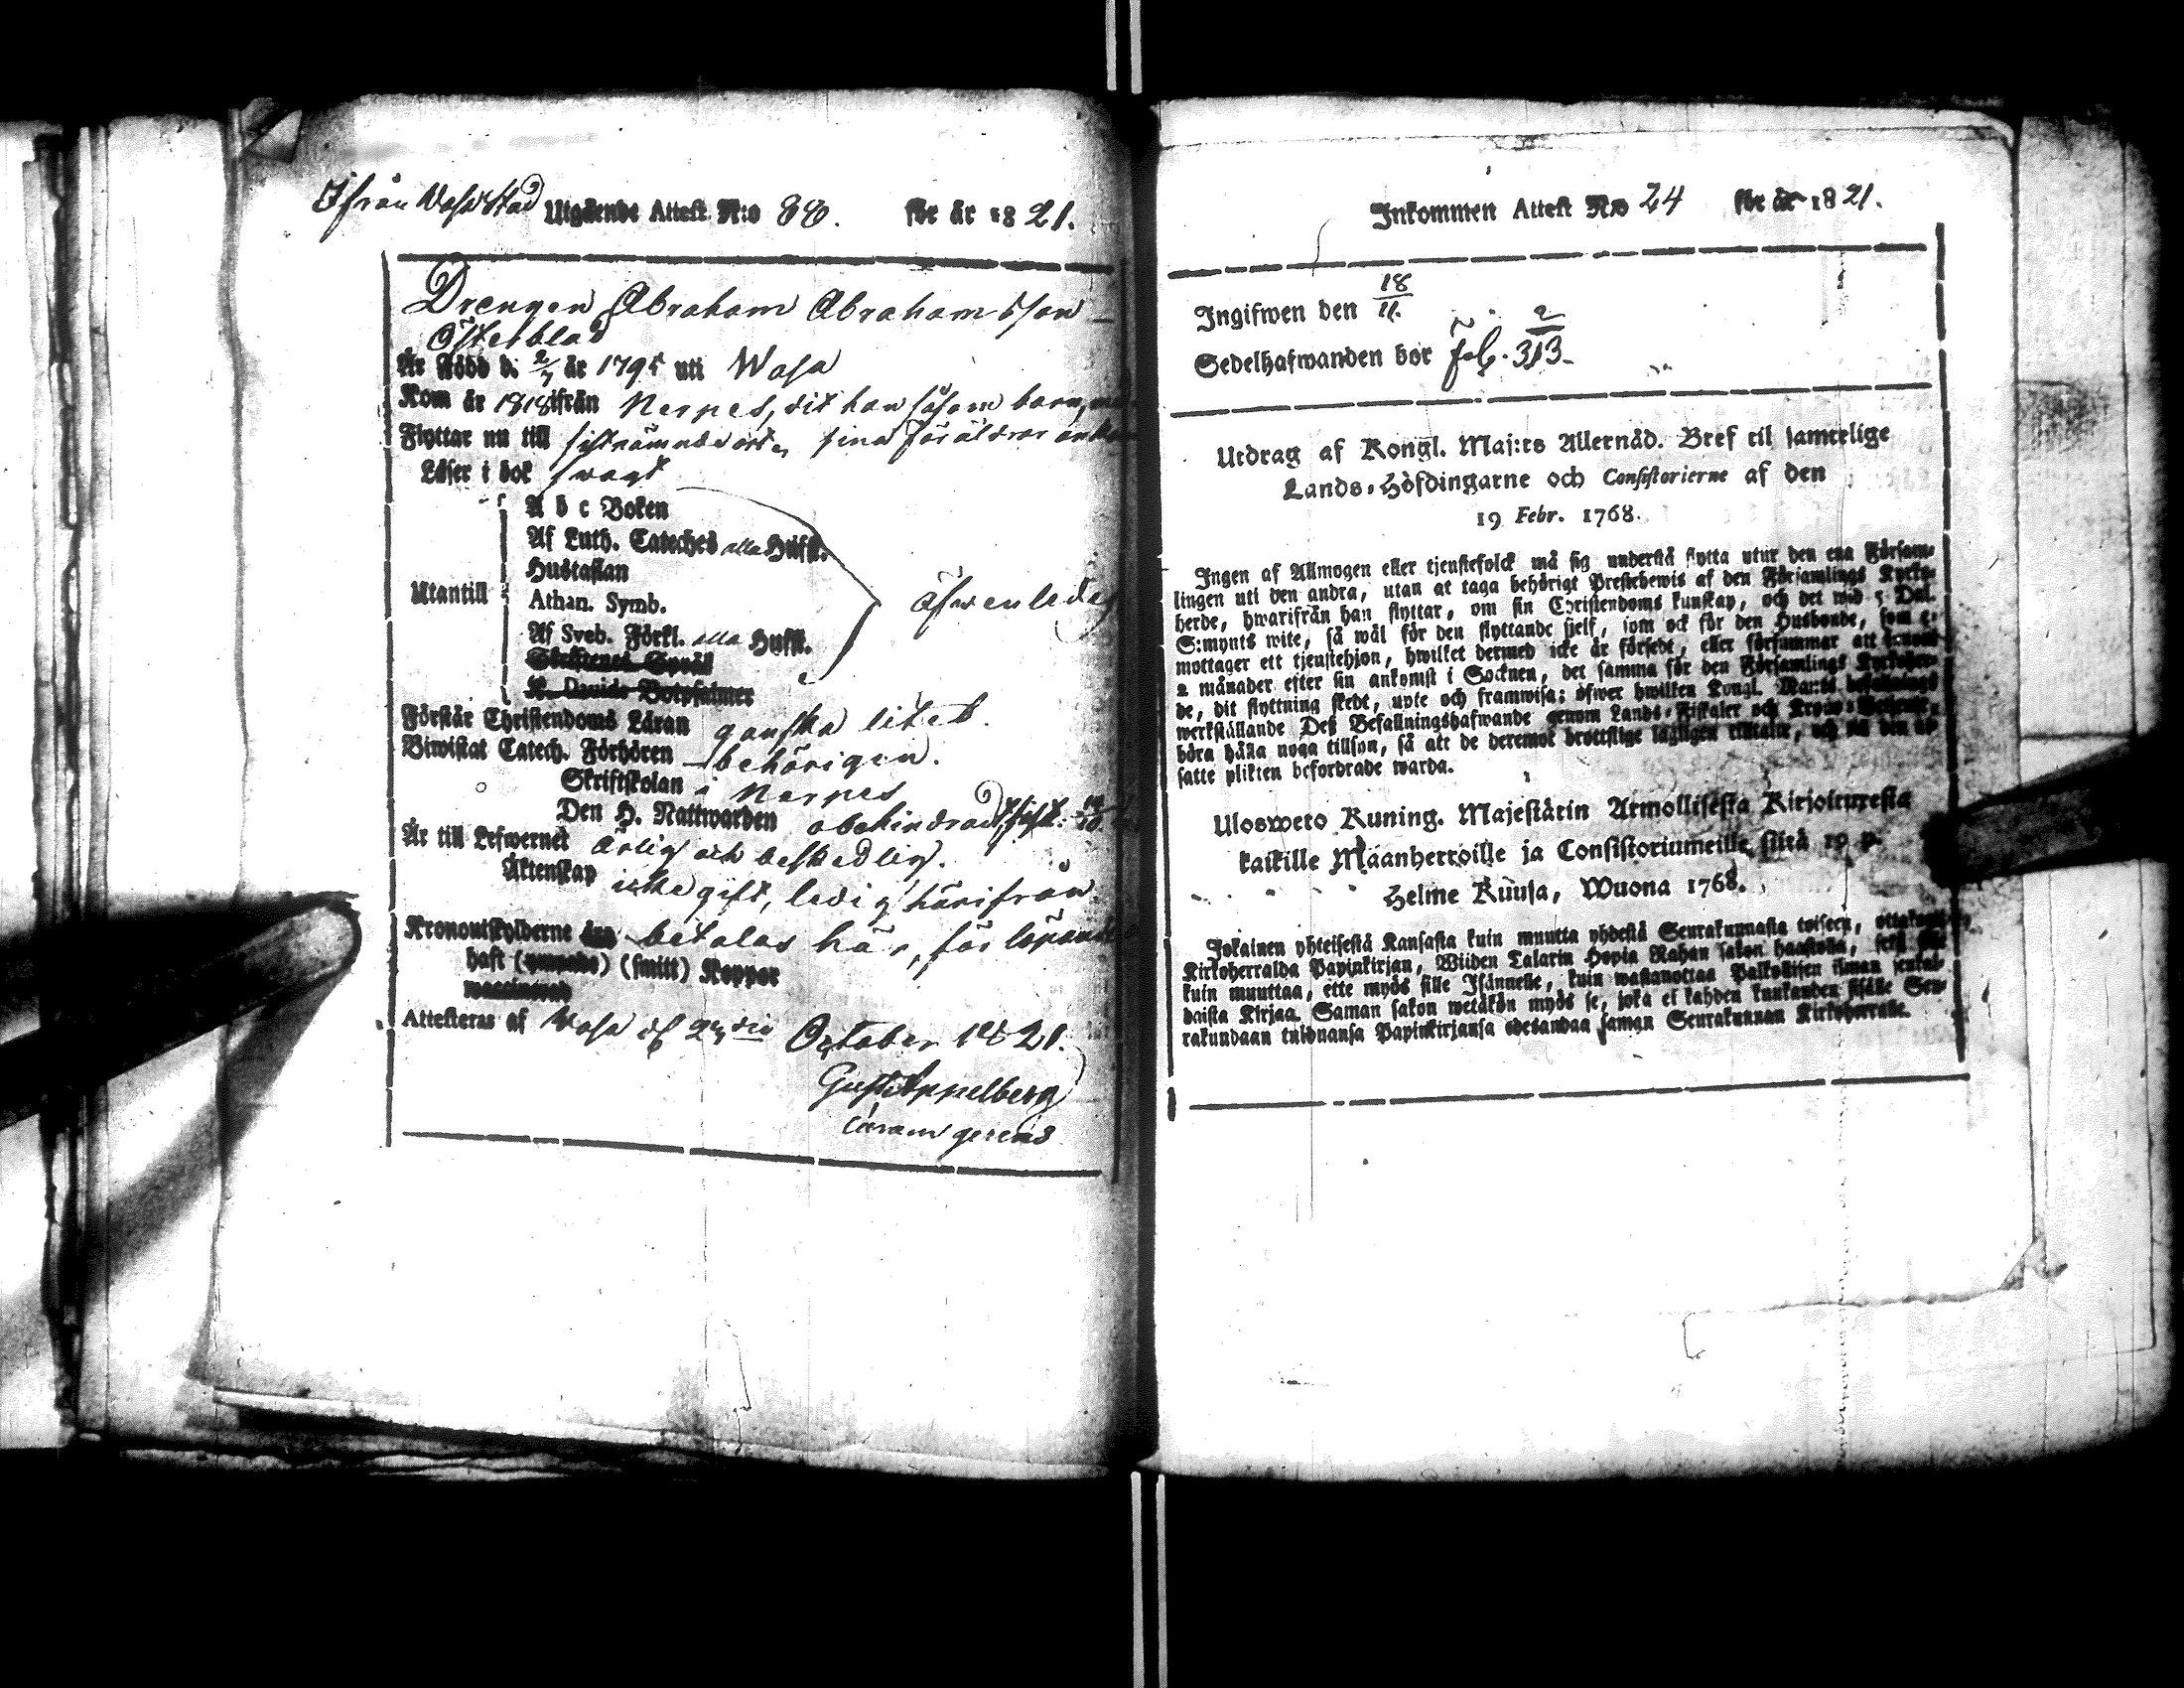 Ifrån Wasa Stad Utgående Attest N:o 88. för år 1821.
Drengen Abraham Abrahamsson
Österblad
Är Född d. 2/7 år 1795 uti Wasa
Kom år 1818 ifrån Nerpes, dit han såsom barn,
Flyttar nu till sistnämnde ort, sina föräldrar
Läser i bok swagt
A b c Boken
Af Luth. Cateches alla Hufst.
Hustaflan
Utantill Athan. Symb. äfwenledes
Af Sveb. Förkl. alla Hufst.
K. Davids Botpsalmer
Förstår Christendoms Läran ganska litet.
Biwistat Catech. Förhören behörigen.
Skriftskolan i Nerpes
Den H. Nattwarden obehindrad, sist.
Är till Lefwernet ärlig och beskedlig.
Äktenskap icke gift, ledig härifrån.
Kronoutskylderne äro betalas här, för löpande
haft (ympade) (smitt) Koppor
vaccinerad
Attesteras af Wasa d. October 1821.
Gust. Appelberg
curam gerens
Inkommen Attest N:o 24 för år 1821.
Ingifwen den 18/11.
Sedelhafwanden bor Fol. 313.
Utdrag af Kongl. Maj:ts Allernåd. Bref til samtelige
Lands-Höfdingarne och Consistorierne af den
19 Febr. 1768.
Ingen af Allmogen eller tjenstefolck må sig understå flytta utur den ena Försam-
lingen uti den andra, utan at taga behörigt Prestebewis af den Församlings Kyrko-
herde, hwarifrån han flyttar, om sin Christendoms kunskap, och det wid 5 Dal.
S:mynts wite, så wäl för den flyttande sjelf, som ock för den Husbonde, som
mottager ett tjenstehjon, hwilket dermed icke är försedt, eller försummar att inom
2 månader efter sin ankomst i Socknen, det samma för den Församlings Kyrkoher-
de, dit flyttning skedt, upte och framwisa; öfwer hwilken Kongl. Maj:ts befallnings
werkställande Deß Befallningshafwande genom Lands-Fiskaler och Krono-Betjente,
böra hålla noga tillsyn, så att de deremot brottslige lagligen tilltalte, och til den ut-
satte plikten befordrade warda.
Ulosweto Kuning. Majestätin Armollisesta Kirjoituxesta
kaikille Maanherroille ja Consistoriumeille, siitä 19 p.
Helme Kuusa, Wuona 1768.
Jokainen yhteisestä Kansasta kuin muutta yhdestä Seurakunnasta toiseen, ottakaan
Kirkoherralda Papinkirjan, Wiiden Talarin Hopia Rahan sakon haastolla, sekä sille
kuin muuttaa, ette myös sille Isännelle, kuin wastanottaa Palkollisen ilman senkal-
daista Kirjaa. Saman sakon wetäkön myös se, joka ei kahden kuukauden sisälle Seu-
rakundaan tulduansa Papinkirjansa edesandaa saman Seurakunnan Kirkoherralle.